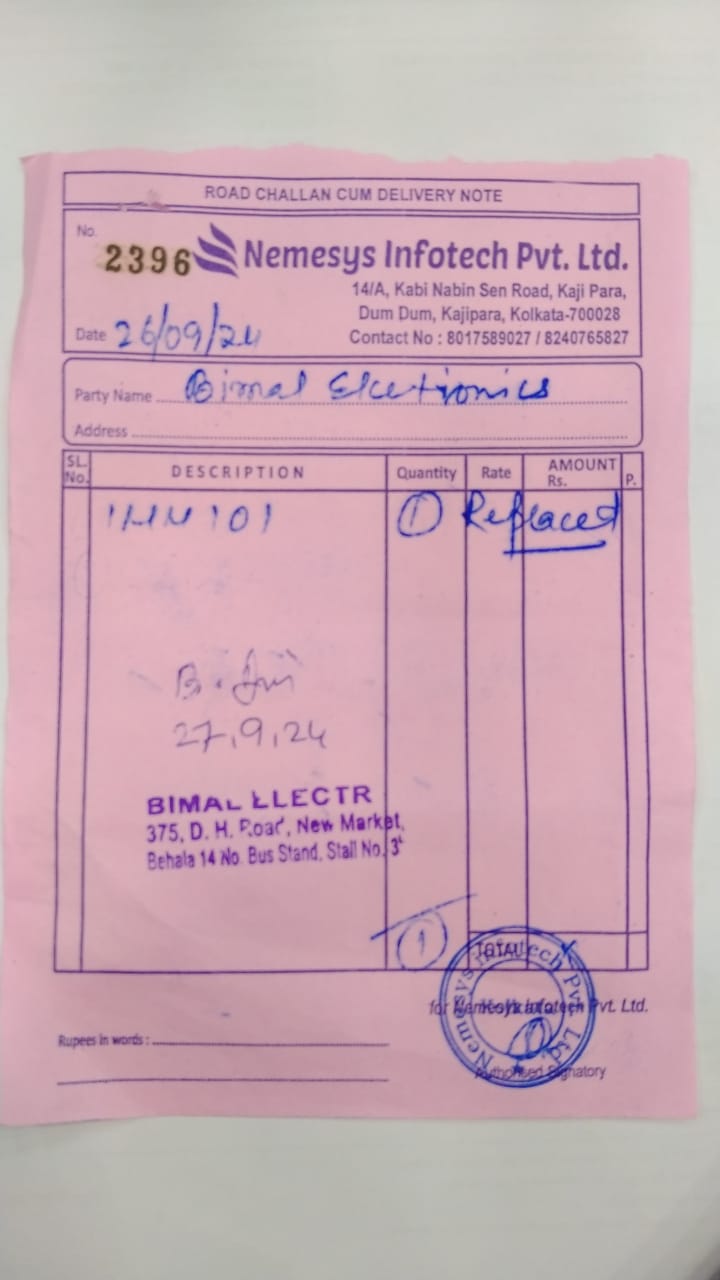 ROAD CHALLAN CUM DELIVERY NOTE
No. 2396
Nemesys Infotech Pvt. Ltd.
14/A, Kabi Nabin Sen Road, Kaji Para,
Dum Dum, Kajipara, Kolkata-700028
Contact No : 8017589027 / 8240765827
Date 26/09/24
Party Name Bimal Elcetronics
Address
SL. No. DESCRIPTION Quantity Rate AMOUNT Rs. P.
1 Replaced
27.9.24
BIMAL ELECTR
375, D. H. Road, New Market,
Behala 14 No. Bus Stand, Stall No. 3
1 TOTAL
for Nemesys Infotech Pvt. Ltd.
Nemesys Infotech Pvt. Ltd.
Kolkata
Rupees in words :
Authorised Signatory